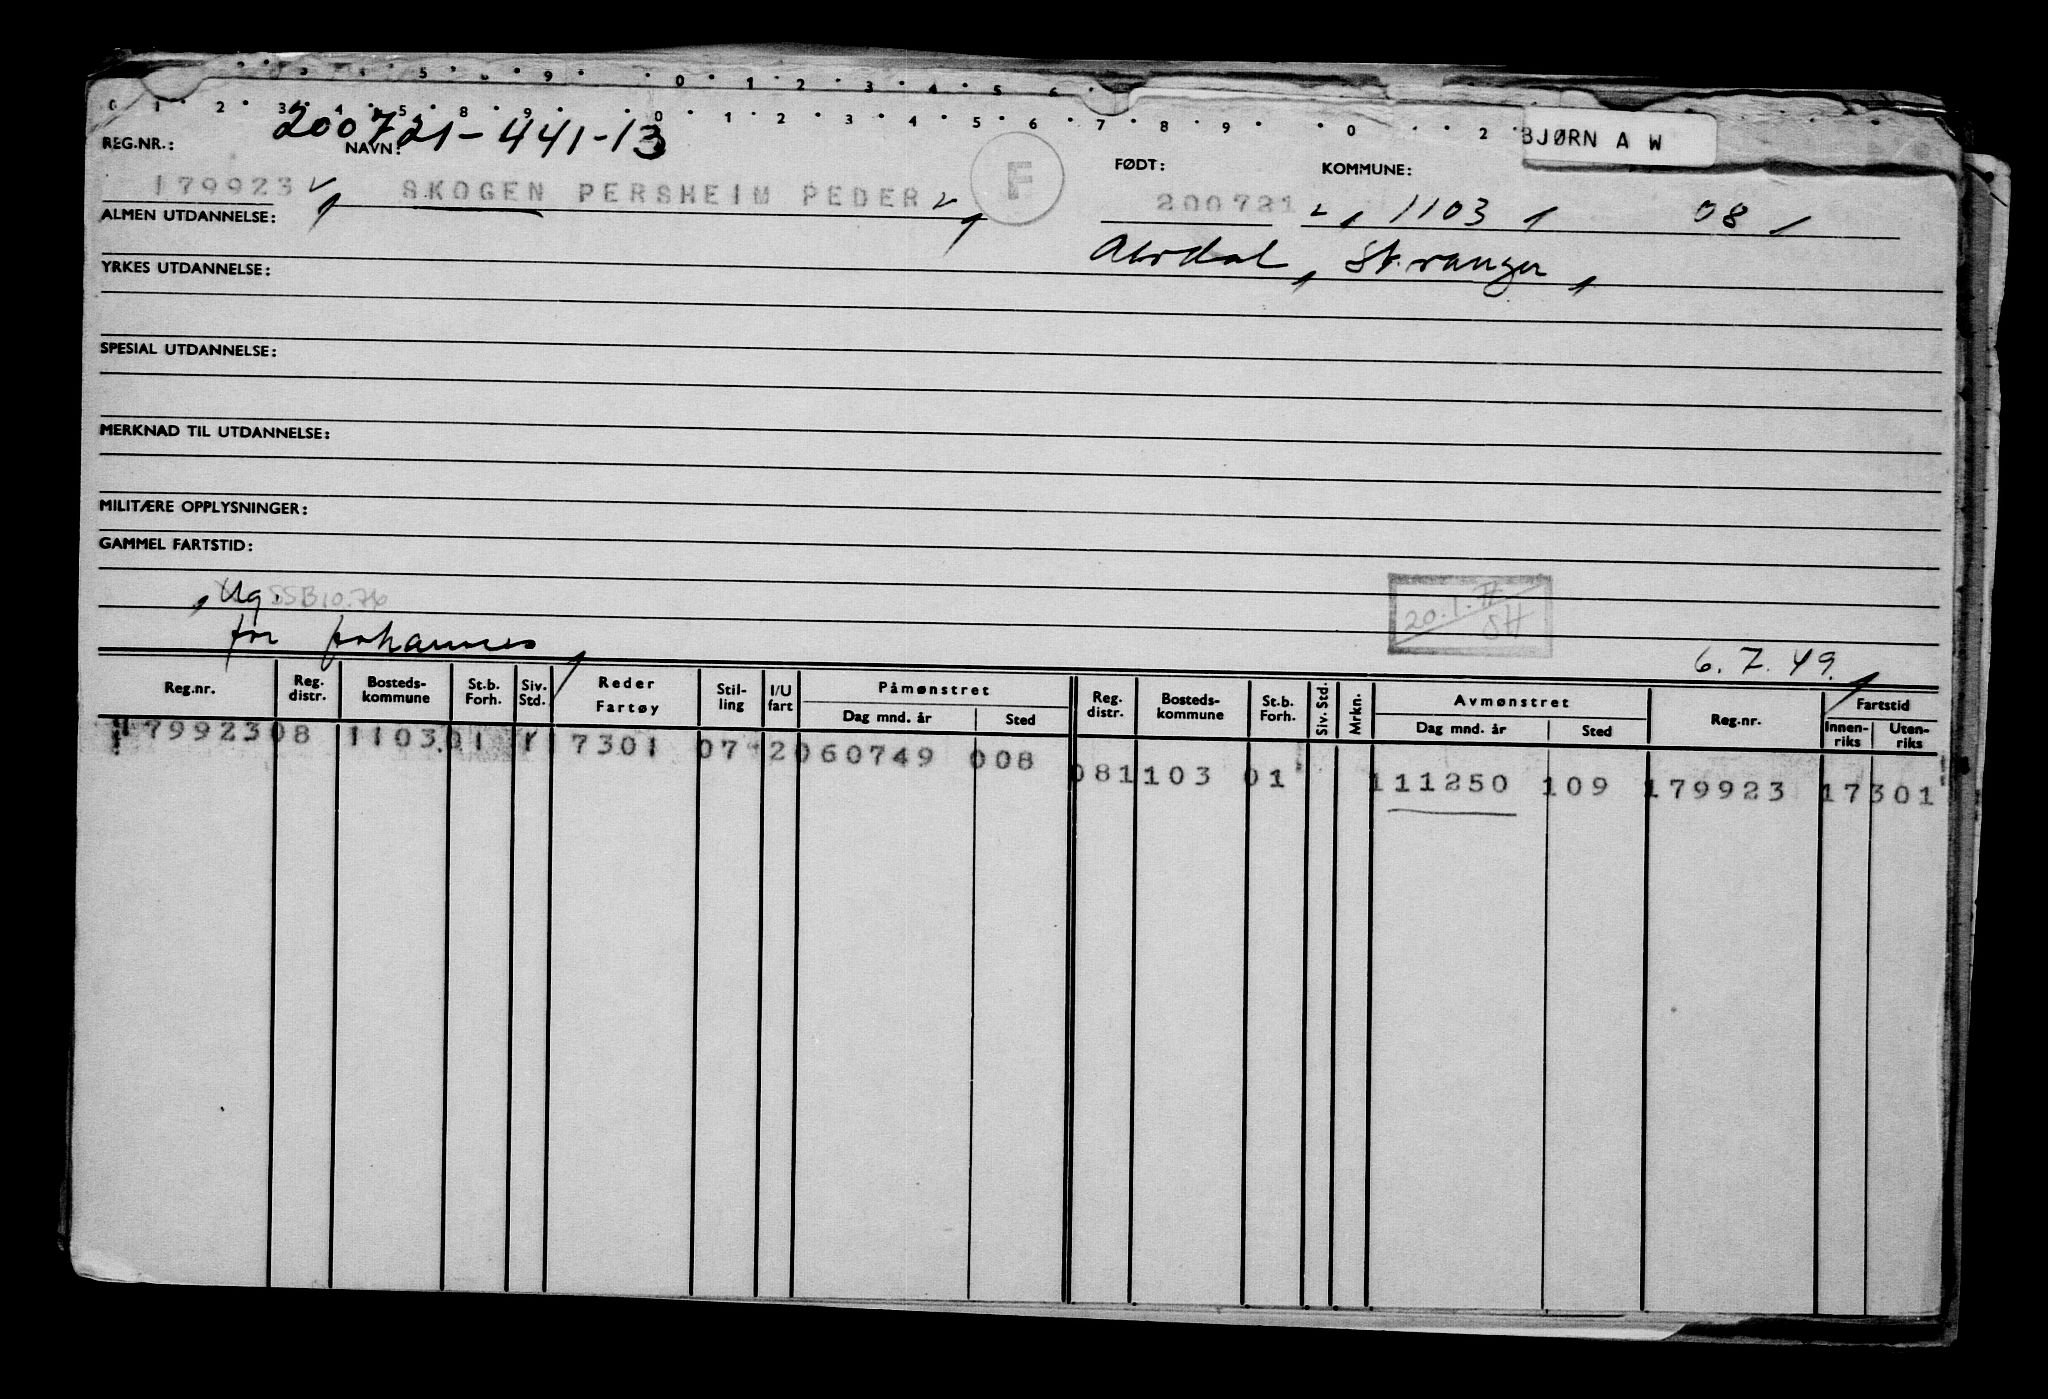 3 4 5 8 9 0 1 2 3 4 5 6
0 1 2 3 4 5 8 9 0 1 2 3 4 5 6 7 8 9 0 2
BJØRN A W
200721-441-13
REG.NR.: NAVN: FØDT: KOMMUNE:
179923 SKOGEN PERSHEIM PEDER F 200721 1103 08
ALMEN UTDANNELSE:
St.vanger
YRKES UTDANNELSE:
SPESIAL UTDANNELSE:
MERKNAD TIL UTDANNELSE:
MILITÆRE OPPLYSNINGER:
GAMMEL FARTSTID:
Ug. SSB10.76
20.1. SH
for Johannes
6.7.49.
Reg.nr. Reg. distr. Bosteds-kommune St.b. Forh. Siv. Std. Reder Fartøy Stil-ling I/U fart Påmønstret Dag mnd. år Sted Reg. distr. Bosteds-kommune St.b. Forh. Siv. Std. Mrkn. Avmønstret Dag mnd. år Sted Reg.nr. Fartstid Innen-riks Uten-riks
179923 08 1103 01 1 17301 07 2 060749 008
08 1103 01 111250 109 179923 17301